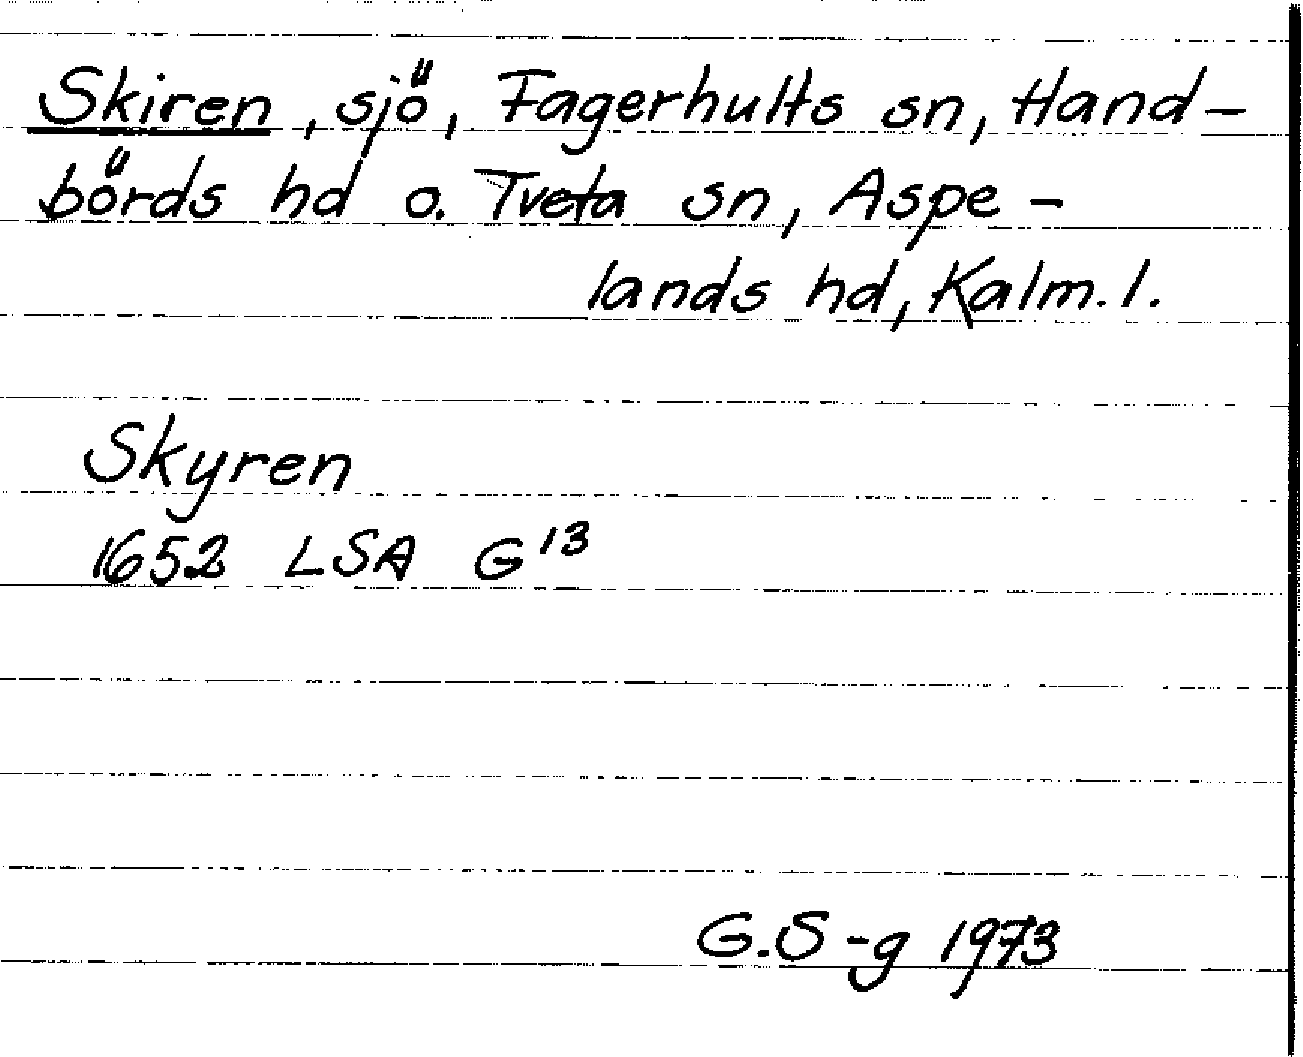 Skiren, sjö, Fagerhults sn, Hand-
börds hd o. Tveta sn, Aspe-
lands hd, Kalm. l.
Skyren
1652 LSA G¹³
G.S-g 1973